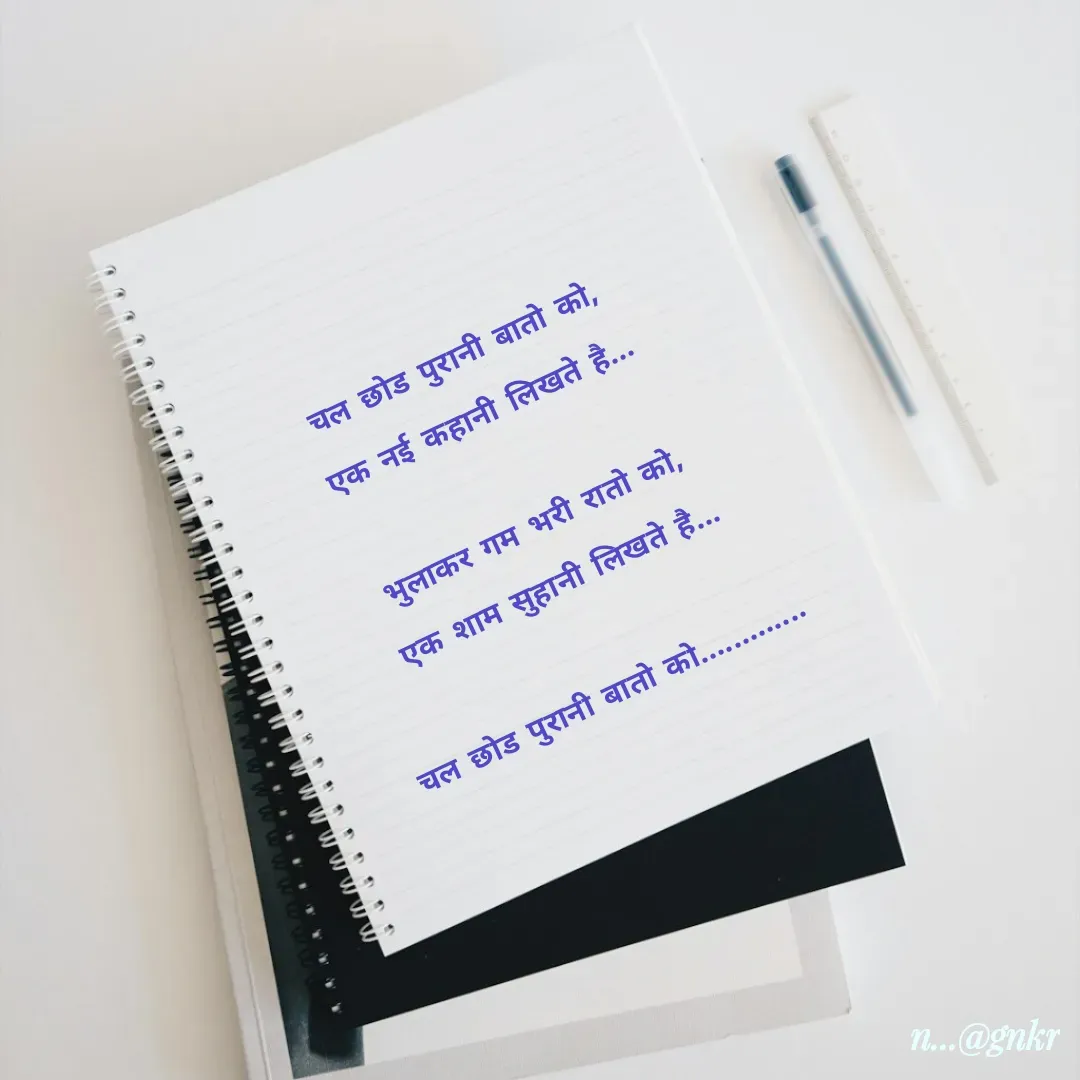 चल छोड पुरानी बातो को,
एक नई कहानी लिखते है...
भुलाकर गम भरी रातो को,
एक शाम सुहानी लिखते है...
चल छोड पुरानी बातो को.............
n...@gnkr